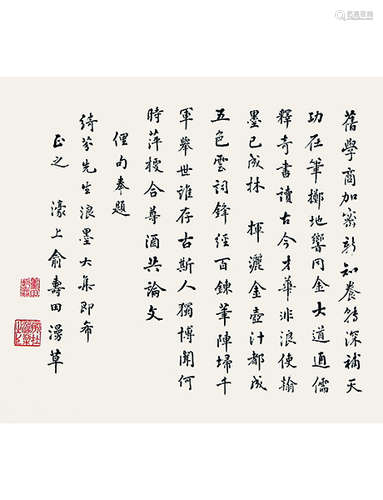 舊學商加密新知養轉深補天
功在筆擲地響同金大道通儒
釋奇書讀古今才華非浪使翰
墨已成林　揮灑金壺汁都成
五色雲詞鋒經百鍊筆陣埽千
軍舉世誰存古斯人獨博聞何
時萍梗合尊酒共論文
俚句奉題
綺芬先生浪墨大集即希
正之　濠上俞壽田漫草